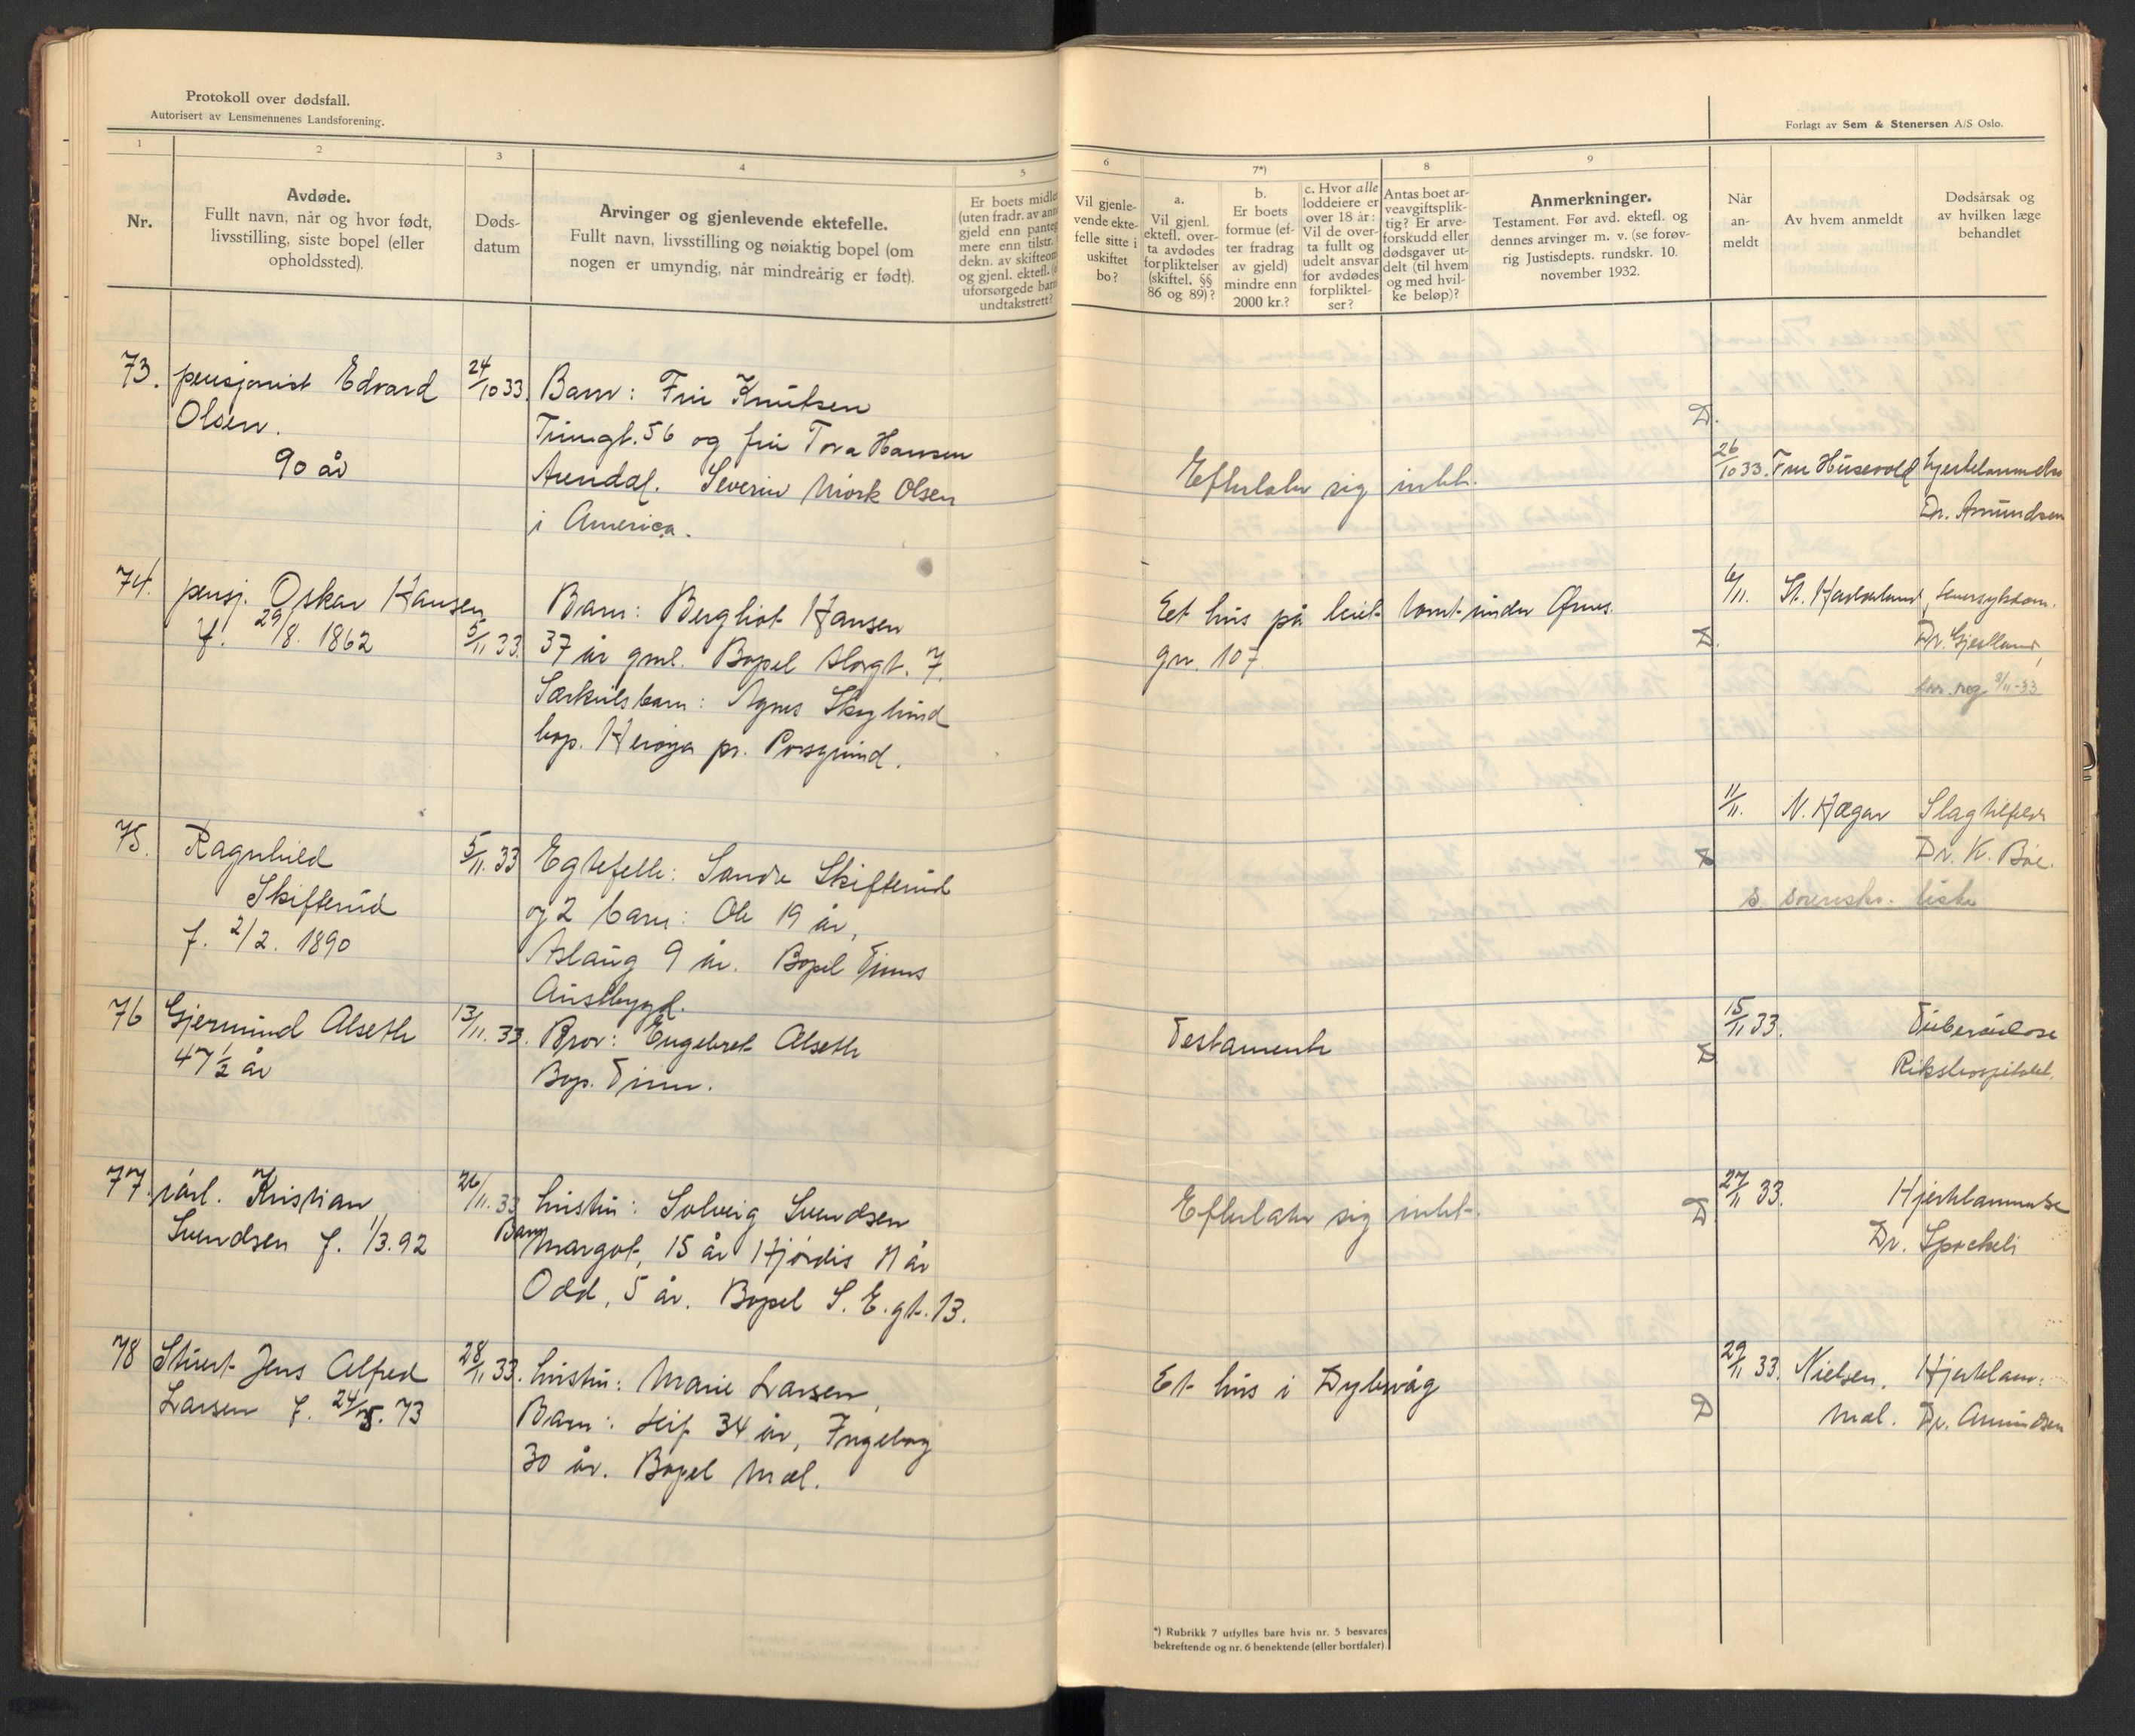 Protokoll over dødsfall.
Autorisert av Lensmennenes Landsforening.
1
2
3
4
5
Nr.
Avdøde.
Fullt navn, når og hvor født,
livsstilling, siste bopel (eller
opholdssted).
Døds-
datum
Arvinger og gjenlevende ektefelle.
Fullt navn, livsstilling og nøiaktig bopel (om
nogen er umyndig, når mindreårig er født).
Er boets midle
(uten fradr. av ann
gjeld enn panteg
mere enn tilstr.
dekn. av skifteom
og gjenl. ektef.
uforsørgede barn
undtakstrett?
73.
pensjonist Edvard
Olsen.
90 år
24/10 33.
Barn: Fru Knutsen
Tinngt. 56 og fru Tora Hansen
Arendal. Severin Mørk Olsen
i America.
74.
pensj. Oskar Hansen
f. 29/8. 1862
5/11 33.
Barn: Bergliot Hansen
37 år gml. Bopel Storgt. 7.
Særkulsbarn: Agnes Skoglund
bop. Herøya pr. Porsgrund.
75.
Ragnhild
Skifterud
f. 2/2. 1890
5/11. 33
Egtefelle: Sondre Skifterud
og 2 barn: Ole 19 år,
Aslaug 9 år. Bopel Tinns
Austbygd.
76
Gjermund Alseth
47 1/2 år
13/11. 33.
Bror: Engebret Alseth
Bop. Tinn.
77.
Kristian
Svendsen f. 1/3. 92
26/11. 33
hustru: Solveig Svendsen
Barn Margot, 15 år Hjørdis 11 år
Odd, 5 år. Bopel S. E. gt. 13.
78
Stuert Jens Alfred
Larsen f. 24/5. 73
28/11 33.
hustru: Marie Larsen,
Barn: Leif 34 år, Ingeborg
30 år. Bopel Mæl.
Forlagt av Sem & Stenersen A/S Oslo.
6
7*)
8
9
Vil gjenle-
vende ekte-
felle sitte i
uskiftet
bo?
a.
Vil gjenl.
ektefl. over-
ta avdødes
forpliktelser
(skiftel. §§
86 og 89)?
b.
Er boets
formue (ef-
ter fradrag
av gjeld)
mindre enn
2000 kr.?
c. Hvor alle
loddeiere er
over 18 år:
Vil de over-
ta fullt og
udelt ansvar
for avdødes
forpliktel-
ser?
Antas boet ar-
veavgiftsplik-
tig? Er arve-
forskudd eller
dødsgaver ut-
delt (til hvem
og med hvil-
ke beløp)?
Anmerkninger.
Testament. Før avd. ektefl. og
dennes arvinger m. v. (se forøv-
rig Justisdepts. rundskr. 10.
november 1932.
Når
an-
meldt
Av hvem anmeldt
Dødsårsak og
av hvilken læge
behandlet
D.
Efterlater sig intet.
26/10 33.
Fru Husevold
hjertelammelse
Dr. Amundsen
Eet hus på leiet tomt under Øines
gnr. 107
D.
6/11.
Dr. Gjestland,
11/11.
N. Hægar
Slagtilfelde
Dr. K. Bøe.
s. svensks. liste
Testamente
D
15/11 33.
Tuberculose
Rikshospitalet.
Efterlater sig intet.
D
27/11 33.
Hjertelammelse
Dr. Spockeli
Et hus i Dybvåg
D
29/11 33.
Nielsen.
Mæl.
Hjertelam:
Dr. Amundsen
*) Rubrikk 7 utfylles bare hvis nr. 5 besvares
bekreftende og nr. 6 benektende (eller bortfaler)